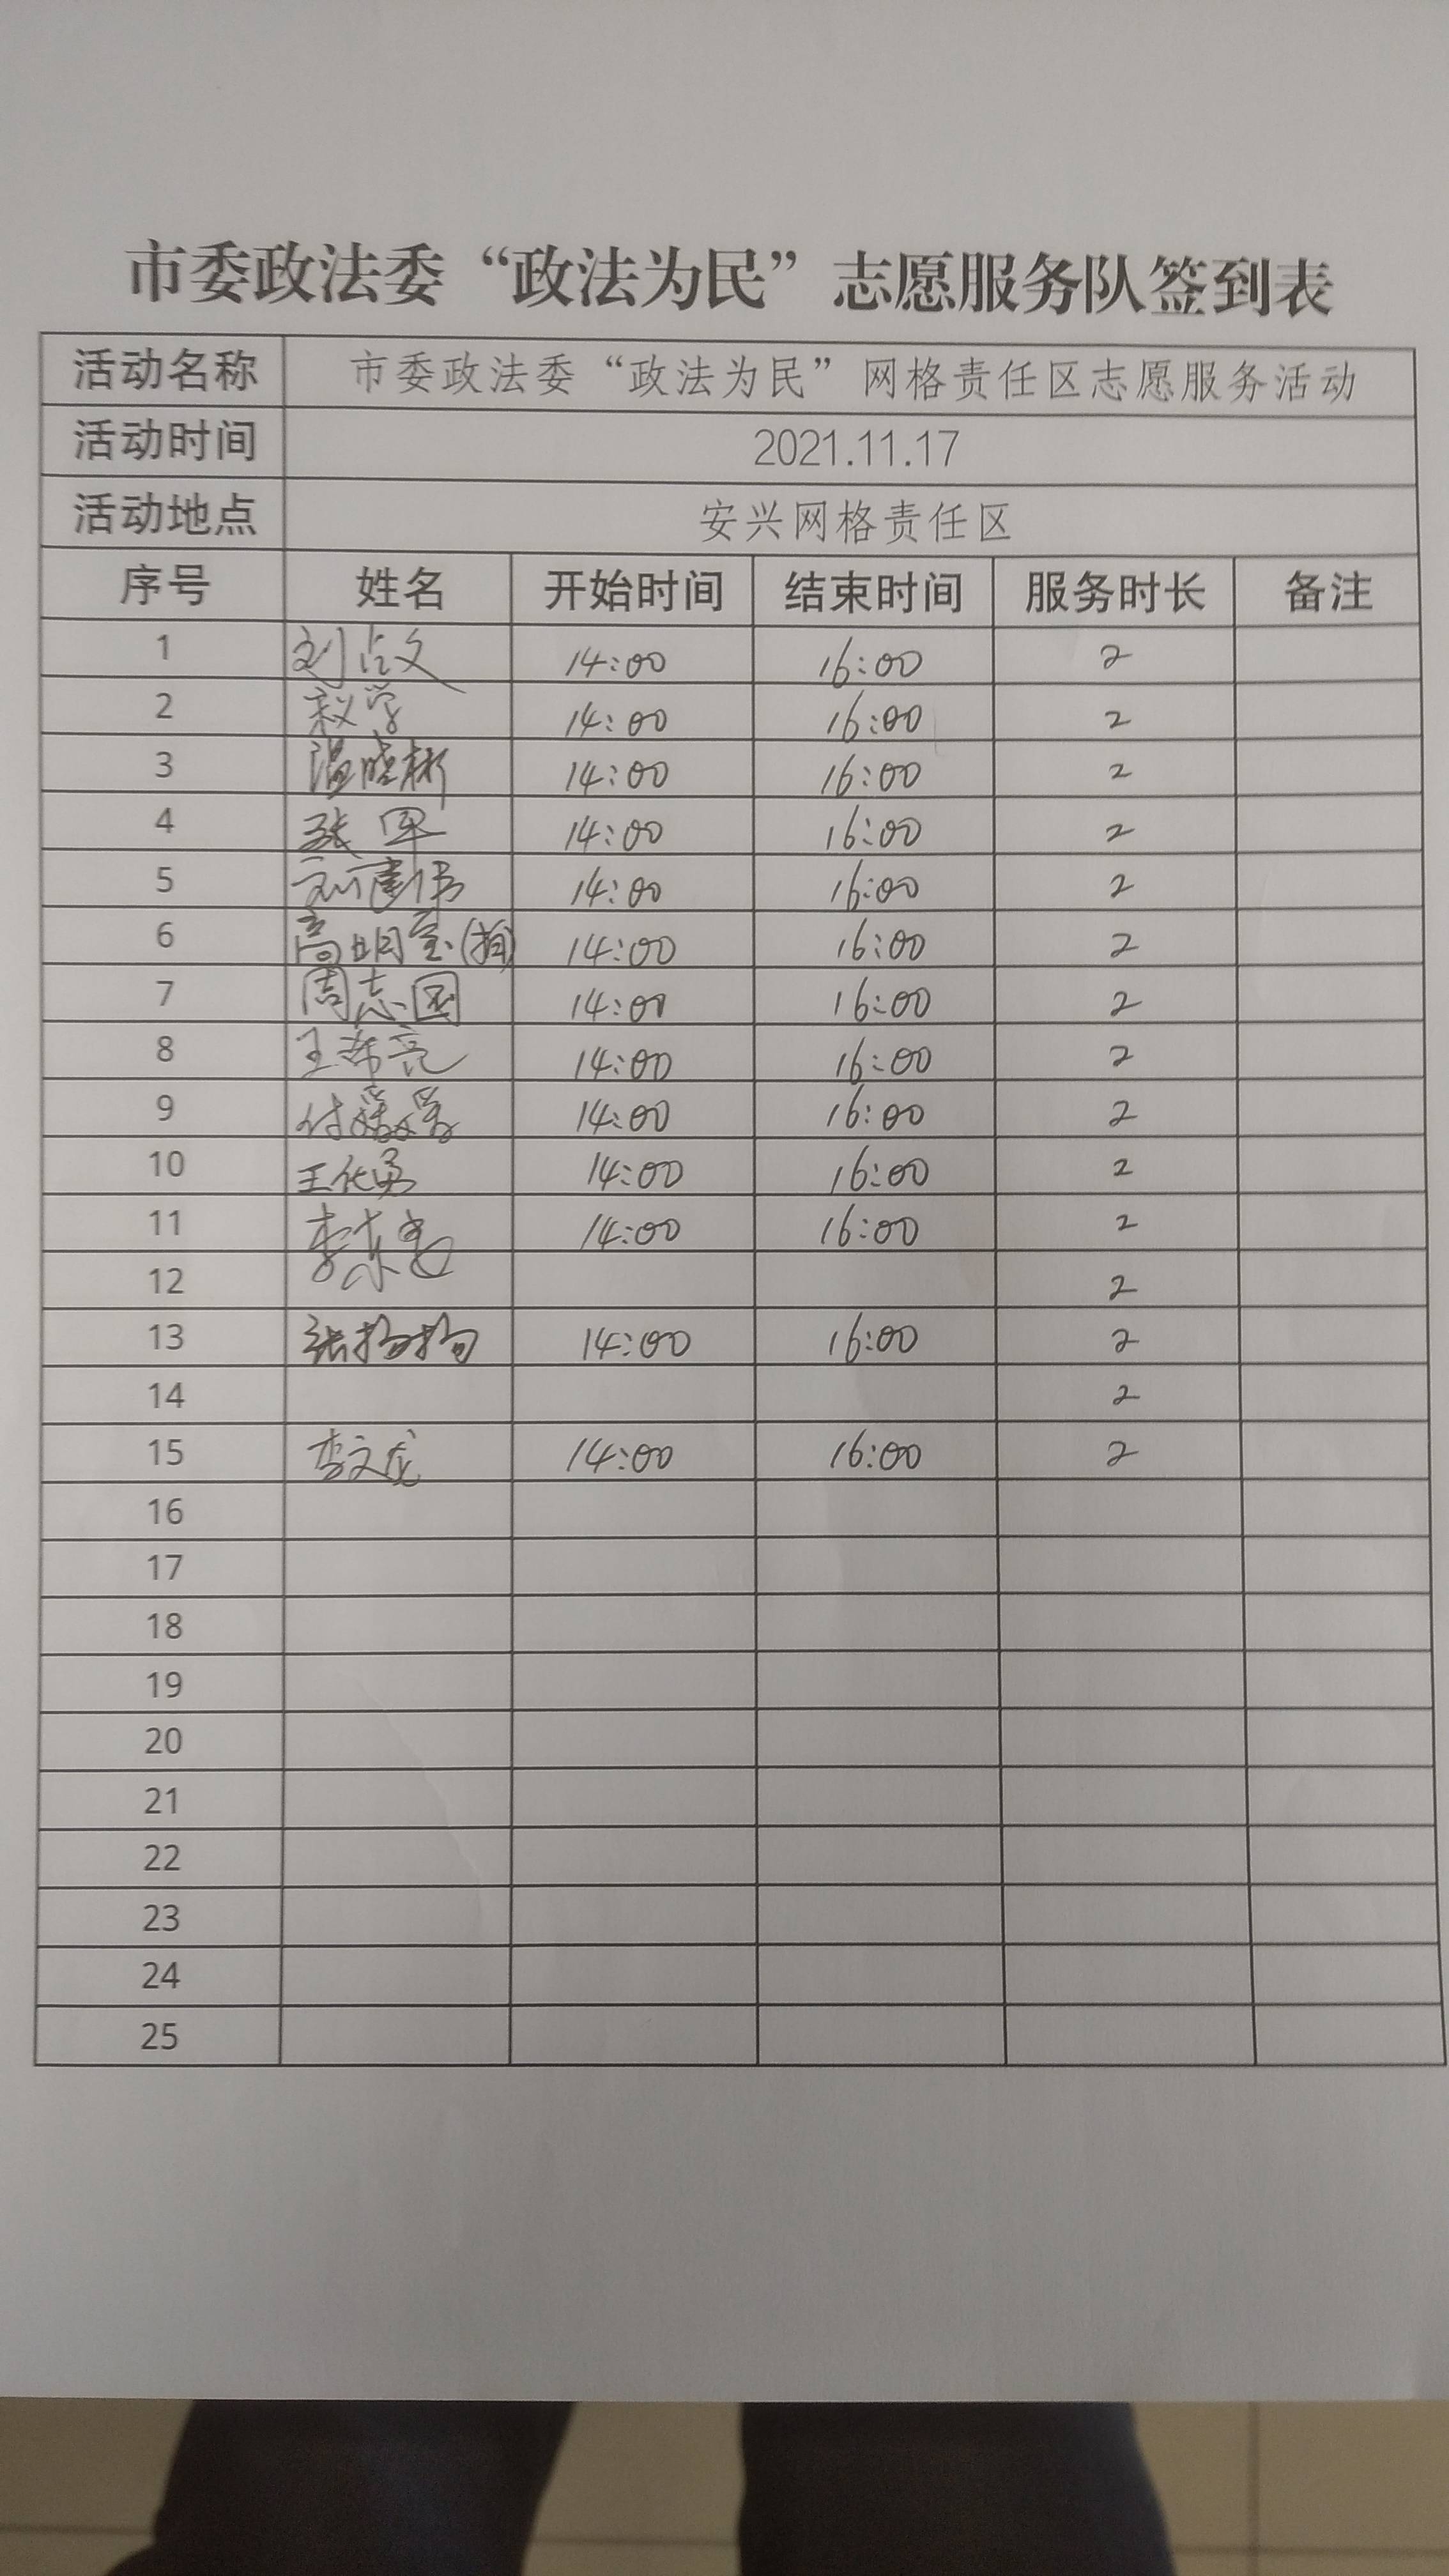 市委政法委“政法为民”志愿服务队签到表
活动名称 市委政法委“政法为民”网格责任区志愿服务活动
活动时间 2021.11.17
活动地点 安兴网格责任区
序号 姓名 开始时间 结束时间 服务时长 备注
1 刘占文 14:00 16:00 2
2 14:00 16:00 2
3 温晓彬 14:00 16:00 2
4 张军 14:00 16:00 2
5 刘建伟 14:00 16:00 2
6 高明莹 14:00 16:00 2
7 周志国 14:00 16:00 2
8 王希亮 14:00 16:00 2
9 付媛媛 14:00 16:00 2
10 王化勇 14:00 16:00 2
11 李 14:00 16:00 2
12 2
13 张扬扬 14:00 16:00 2
14 2
15 李文龙 14:00 16:00 2
16
17
18
19
20
21
22
23
24
25